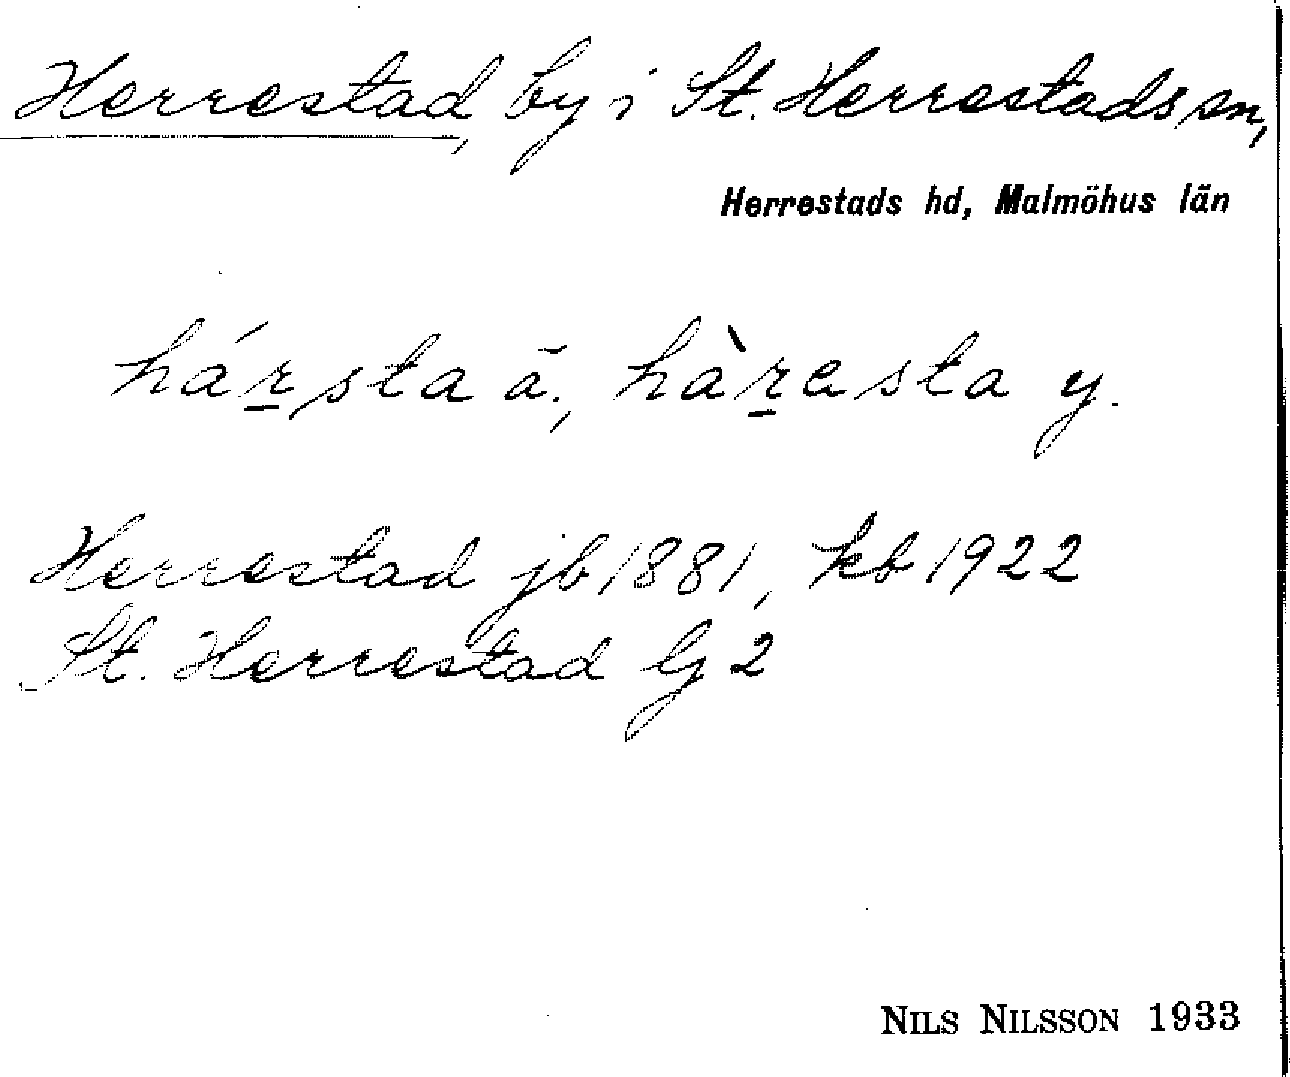 Herrestad, by i St. Herrestads sn,
Herrestads hd, Malmöhus län
hárṣta ä., hàresta y.
Herrestad jb 1881, kb 1922
St. Herrestad Gj 2
NILS NILSSON 1933